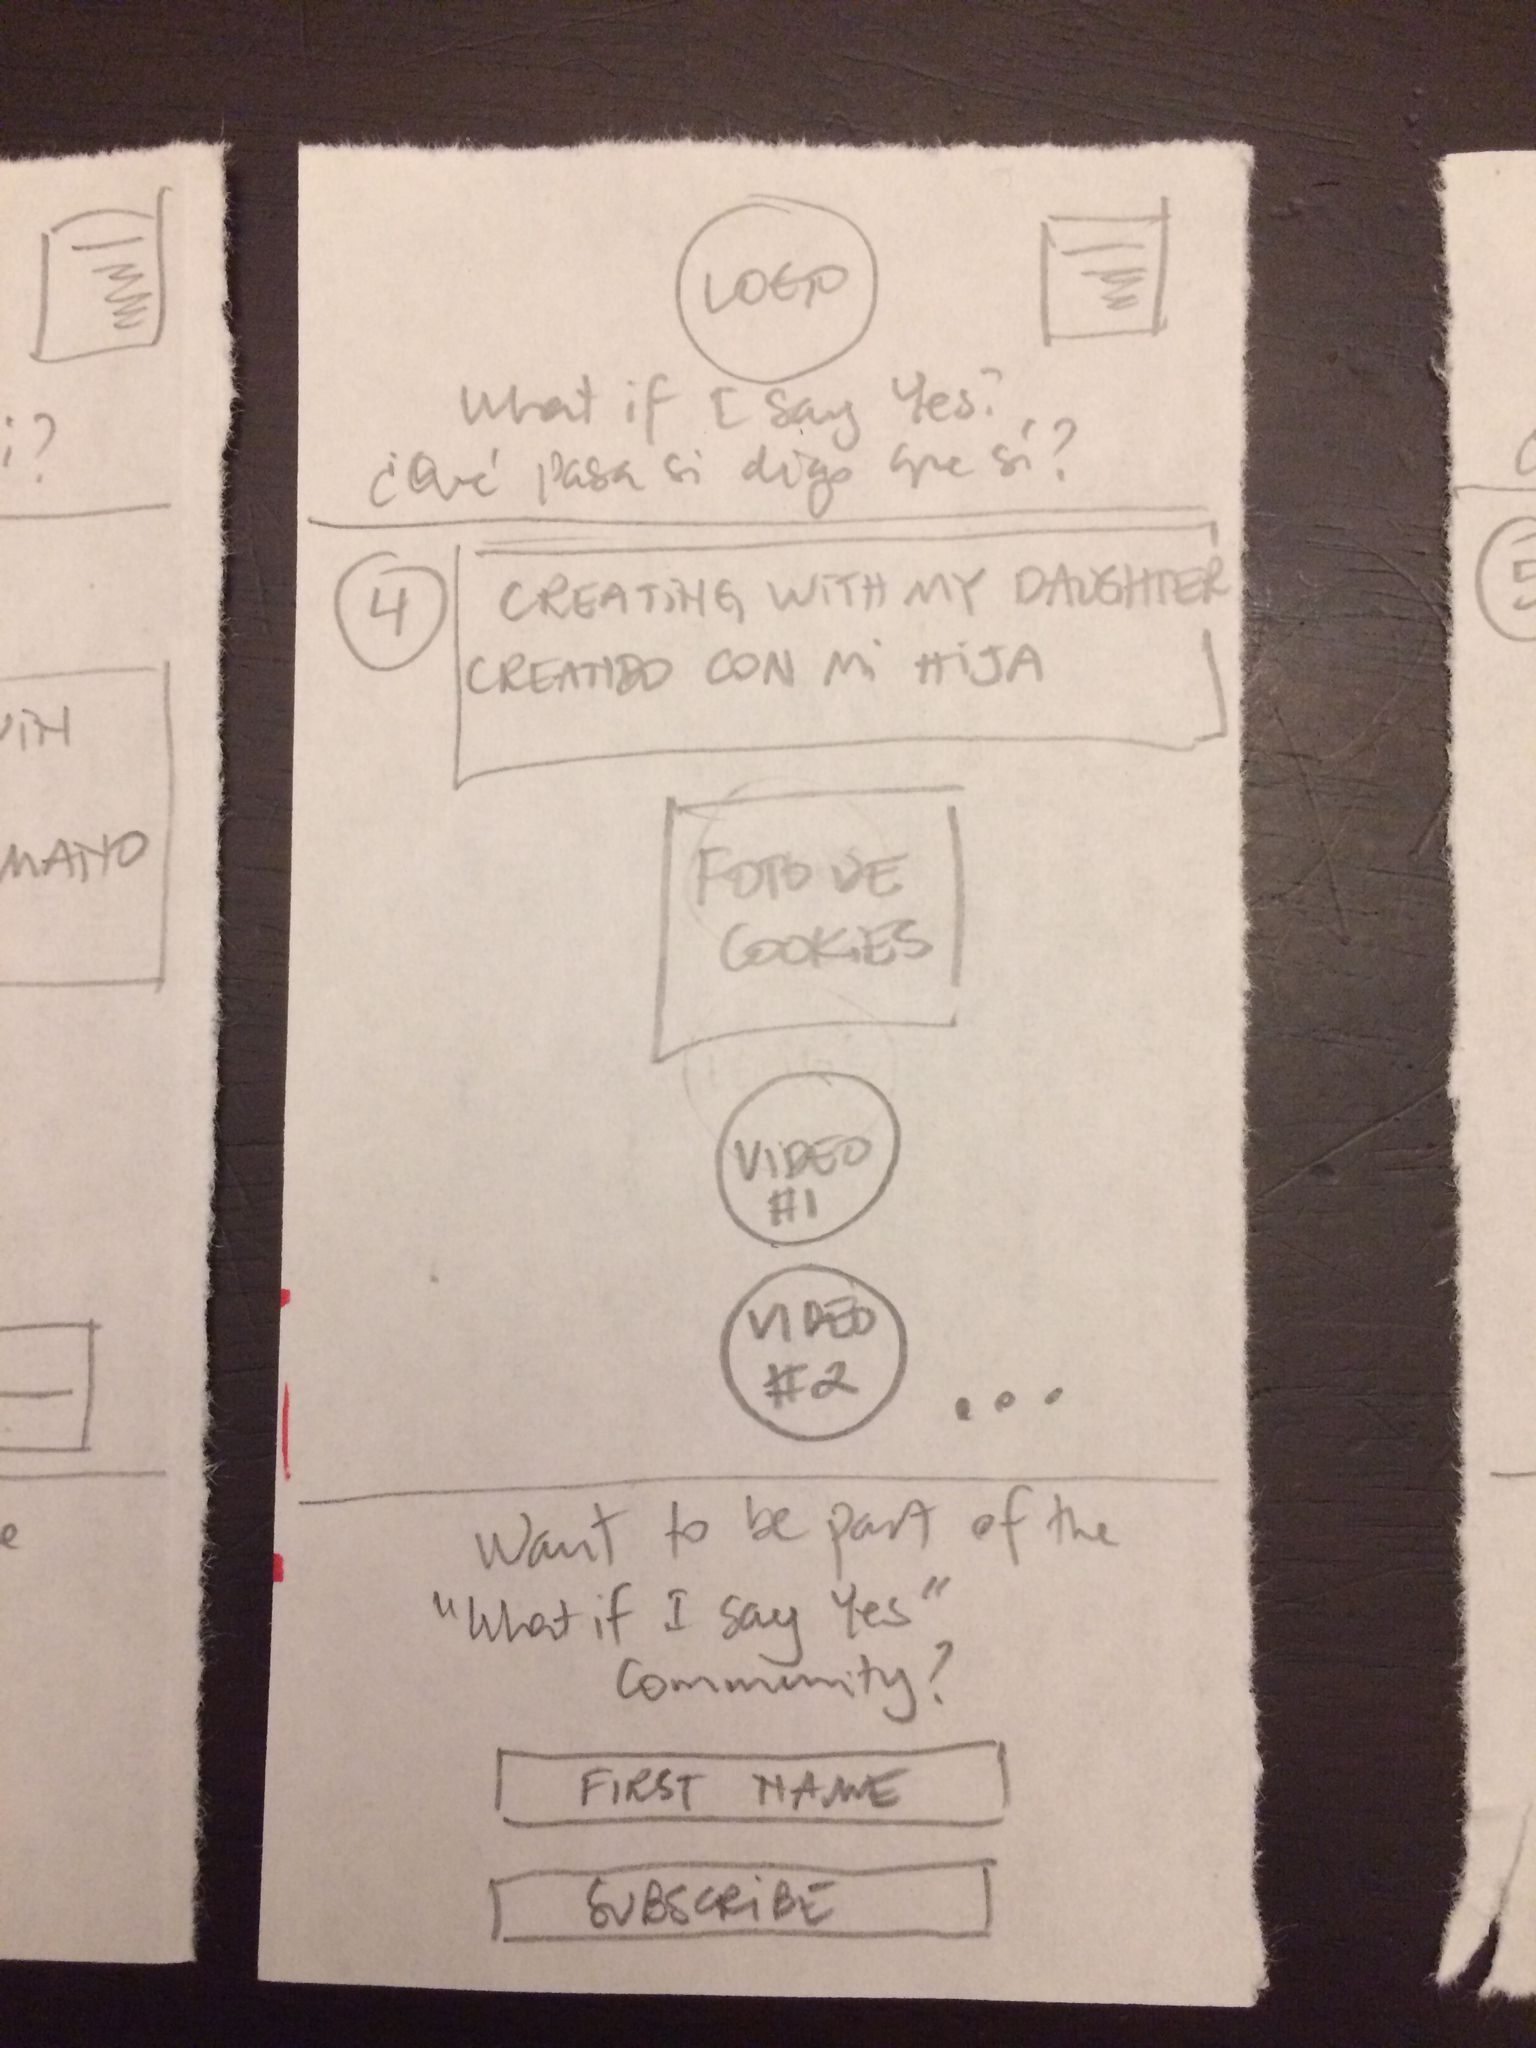 LOGO
What if I say Yes?
¿Qué pasa si digo que sí?
4
CREATING WITH MY DAUGHTER
CREANDO CON Mi HiJA
FOTO DE
COOKiES
ViDEO
#1
ViDEO
#2
...
Want to be part of the
"What if I say Yes"
Community?
FIRST NAME
SUBSCRiBE
i?
MANO
5